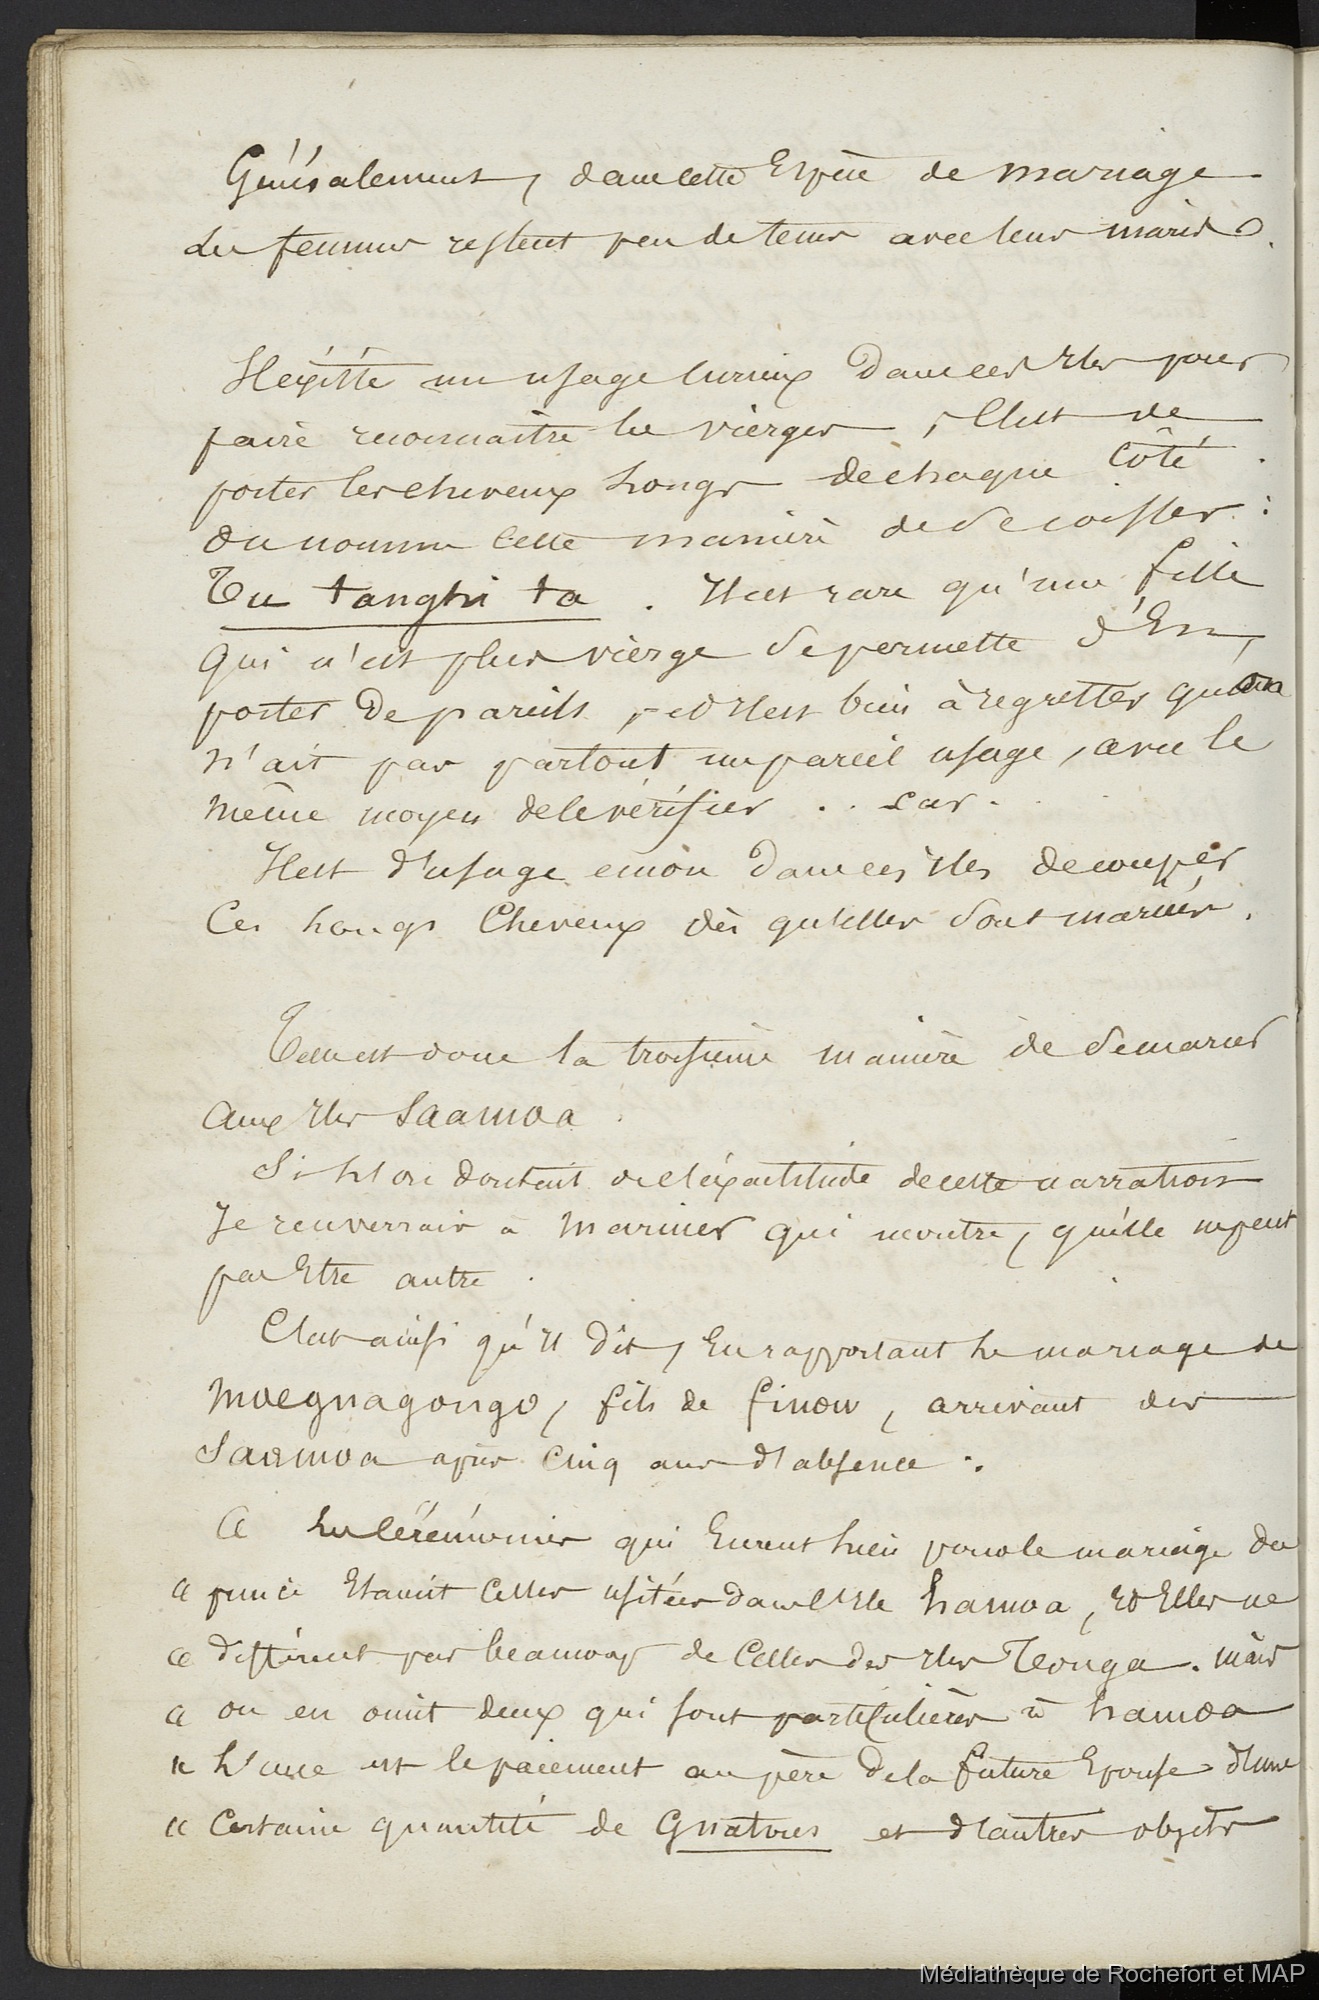 Généralement, dans cette Espèce de mariage
les femmes restent peu de tems avec leurs maris.
Il existe un usage curieux dans ces Iles pour
faire reconnaitre les vierges, c'est de
porter les cheveux longs de chaque côté.
On nomme cette manière de se coiffer :
Tu tanghi ta. Il est rare qu'une fille
qui n'est plus vierge se permette d'En
porter de pareils, et Il est bien à regretter qu'on
n'ait pas partout un pareil usage, avec le
même moyen de le vérifier . . car .
Il est d'usage encore dans ces iles de couper
Ces longs Cheveux dès qu'elles sont mariées.
Telle est donc la troisième manière de se marier
aux Iles Saamoa.
Si l'on doutait de l'exactitude de cette narration
Je renverrais à Mariner qui montre, qu'elle ne peut
pas Etre autre.
C'est ainsi qu'Il dit, En rapportant le mariage de
Moegnagongo, fils de finow, arrivant des
Saamoa après Cinq ans d'absence :
« Les Cérémonies qui Eurent lieu pour le mariage du
« prince Etaient Celles usitées dans l'Ile hamoa, Et Elles ne
« diffèrent pas beaucoup de Celles des Iles Tonga. mais
« on en omit deux qui sont particulières à hamoa
« L'une est le paiement au père de la future Epouse d'une
« Certaine quantité de Gnatoos et d'autres objets
Médiathèque de Rochefort et MAP